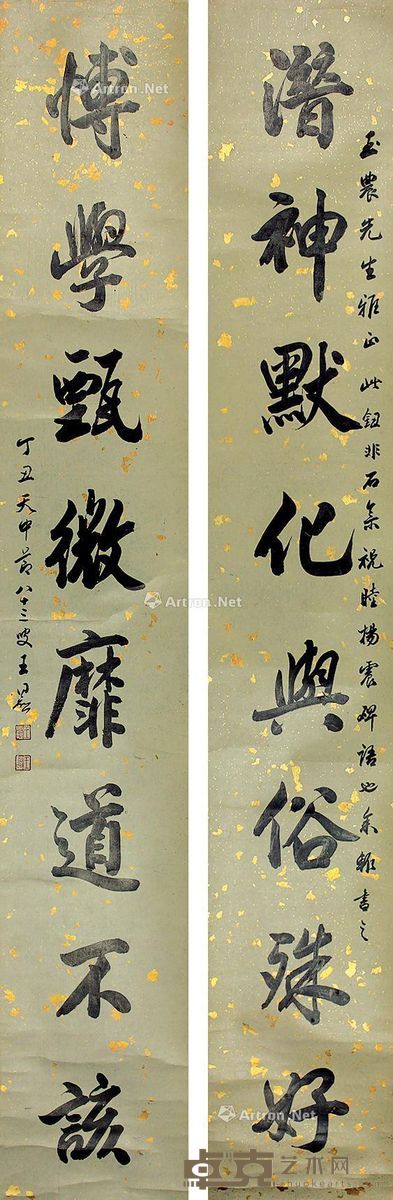 潛神默化與俗殊好
玉農先生雅正 此鈕非石集祝睦楊震碑語也 余雜書之
博學甄微靡道不該
丁丑天中節八十三叟王同愈
Artron.Net
Artron.Net
Artron.Net
Artron.Net
Artron.Net
Artron.Net
卓克艺术网